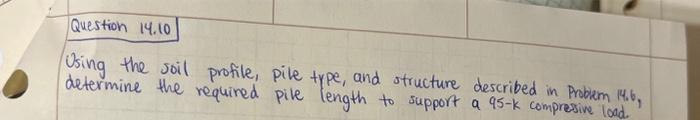 Question 14.10
Using the soil profile, pile type, and structure described in Problem 14.6,
determine the required pile length to support a 95-k compressive load.